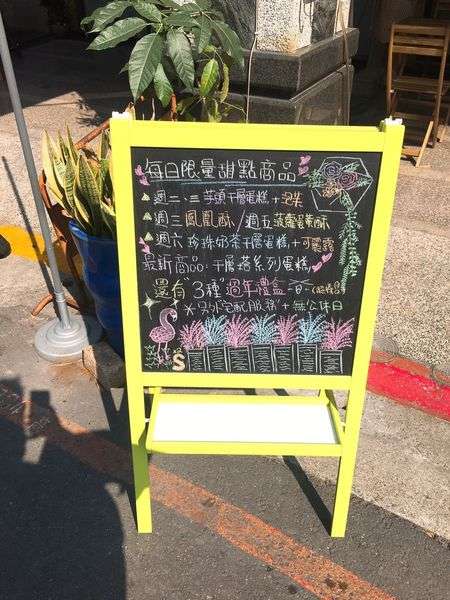 每日限量甜點商品
週二、三 芋頭千層蛋糕+泡芙
週三鳳凰酥/週五菠蘿蛋黃酥
週六 珍珠奶茶千層蛋糕+可麗露
最新商品:千層塔系列蛋糕
還有"3種"過年禮盒
宅配服務+無公休日
S